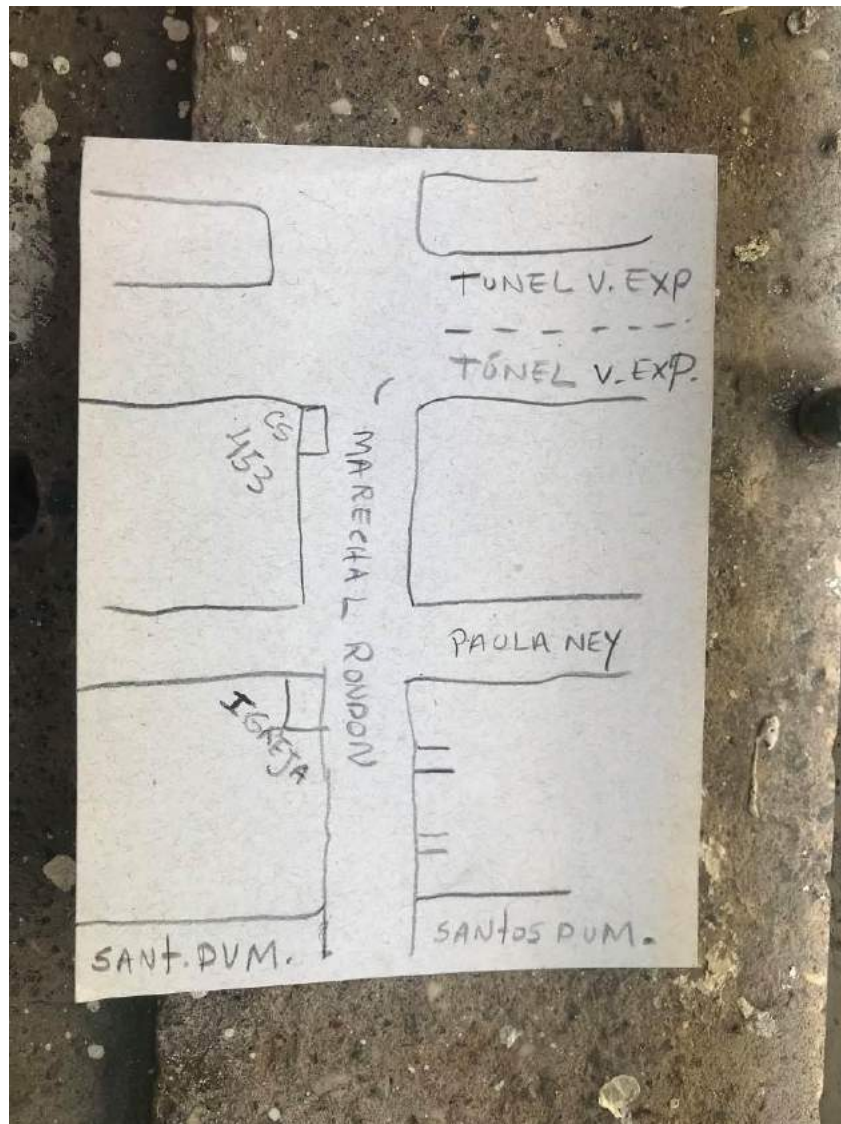 TUNEL V. EXP
TÚNEL V. EXP.
CS
453
MARECHAL RONDON
PAULA NEY
IGREJA
SANT. DUM.
SANtOS DUM.